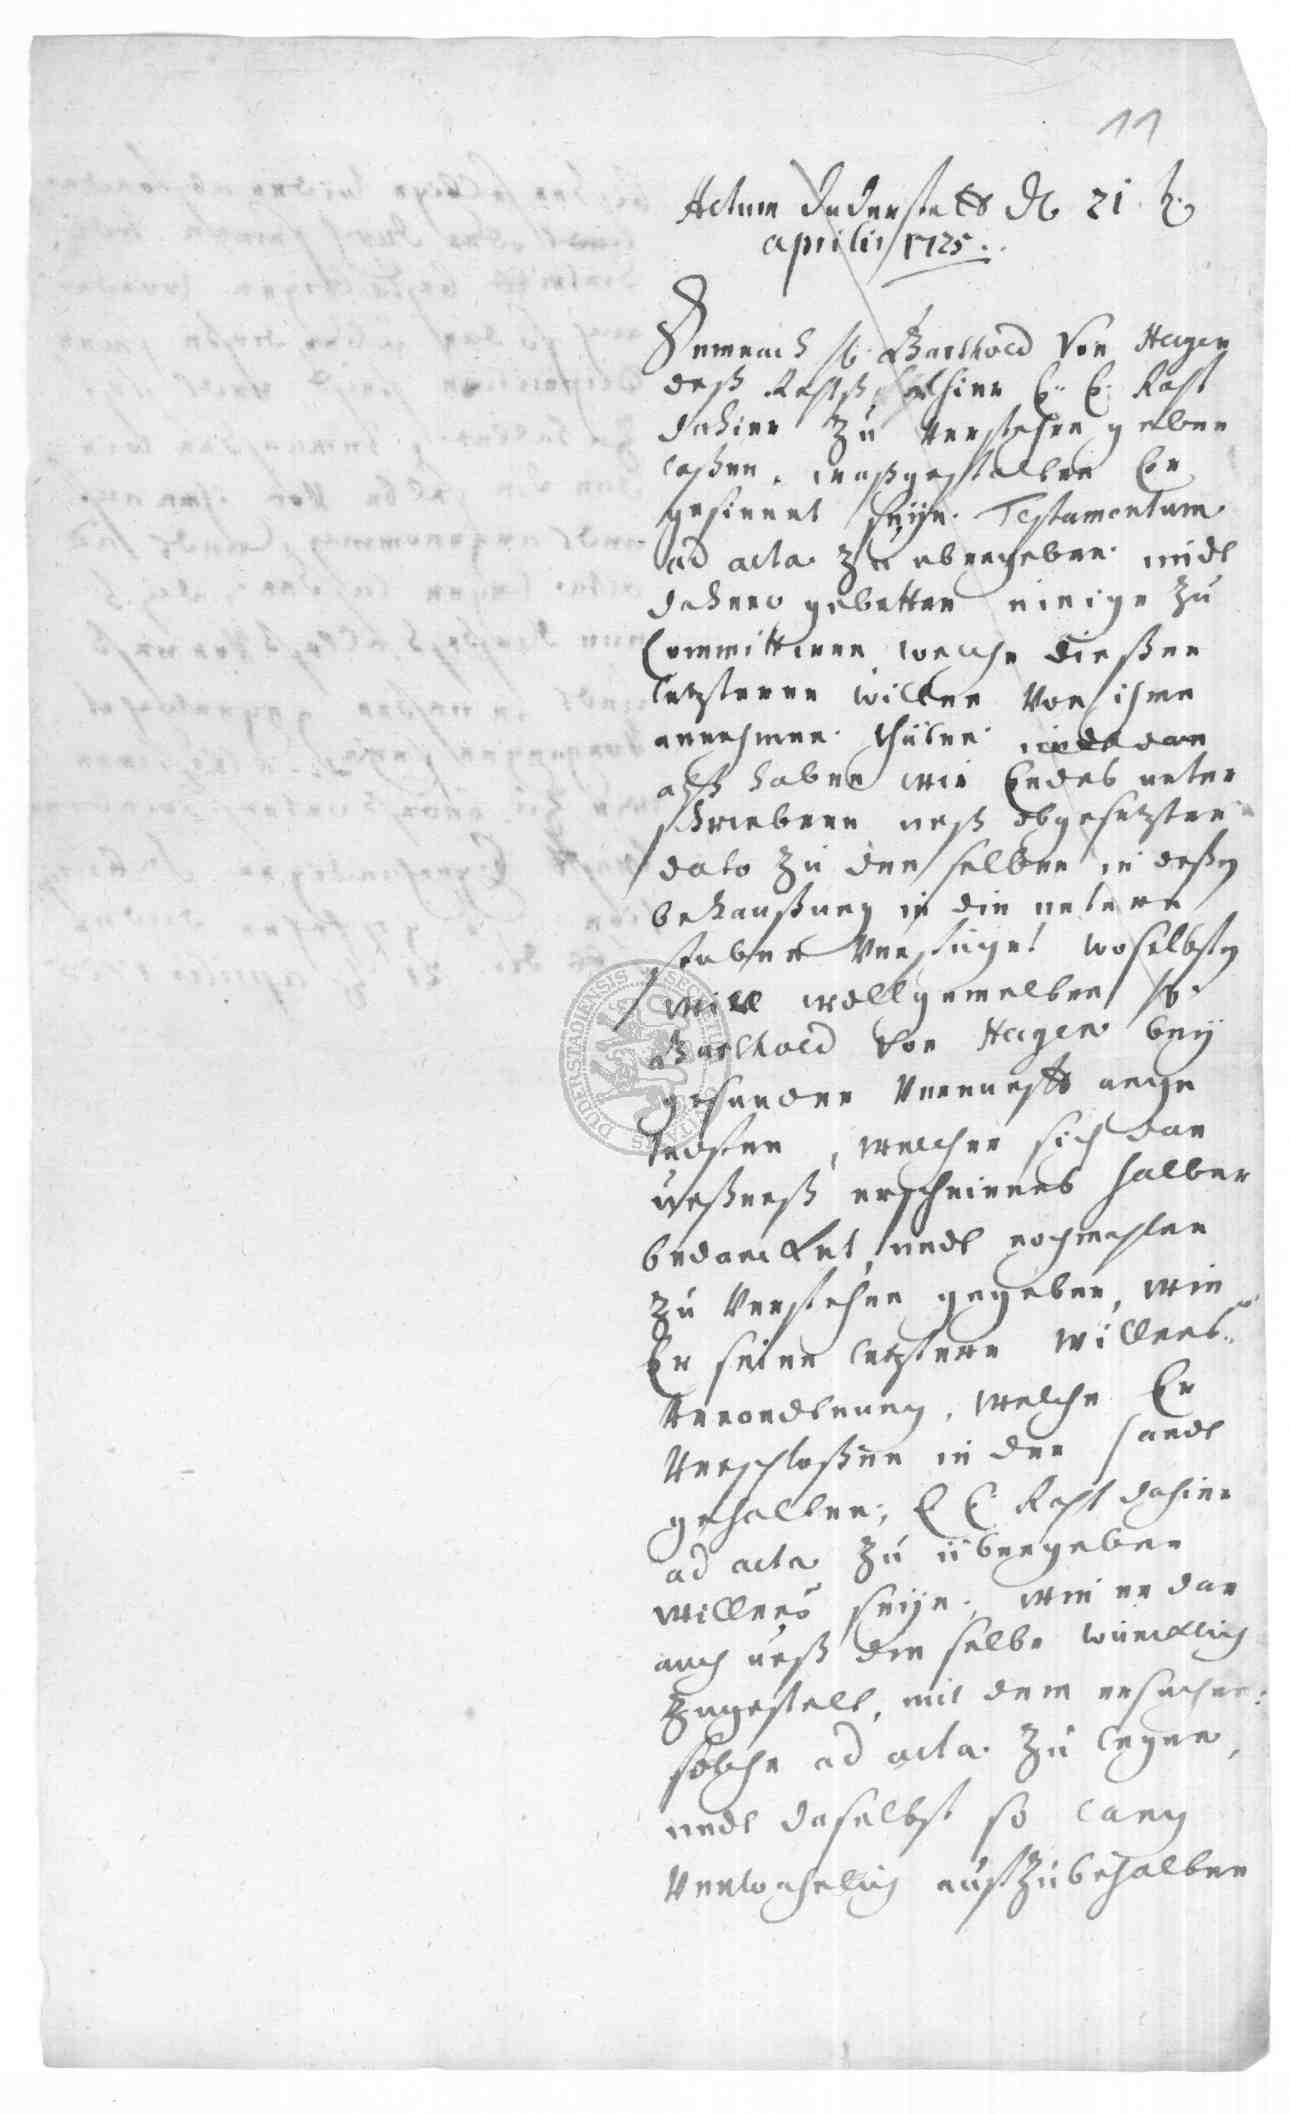 11
Actum Duderstatt d 21 t.
aprilis 1725.
Demnach H. Barthold Von Hagen
deß Rahtß hier E. E. Raht
dahier zu verstehen geben
laßen, waßgestalten Er
gesinnet seÿe Testamentum
ad acta zu übergeben undt
dahero gebetten einige zu
Committiren welche dießen
letzteren willen Von ihme
annehmen thäten
alß haben wir Endes unter
schriebene unß obgesetzten
dato zu den selben in deßen
behaußung in die untere
stuben Verfüget woselbsten
wir wollgemelten H.
Barthold Von Hagen beÿ
gesunder Vernunfft ange
troffen, welcher sich dan
unßreß erscheinens halber
bedancket, undt nochmahlen
zu Verstehen gegeben, wie
Er seine letztere Willens
Verordtnung, welche Er
Verschloßen in der handt
gehalten, E E Raht dahier
ad acta zu übergeben
willens seÿe, wie er dan
auch unß die selbe würcklich
zugestelt, mit dem ersuchen
solche ad acta zu legen,
undt daselbst so lang
Verwahrlich auffzubehalten
SECRETUM DUDERSTADIENSIS